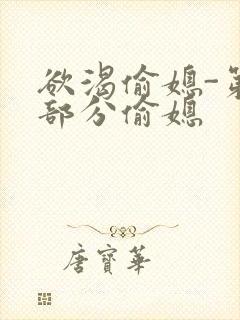 欲渴偷媳-第
部分偷媳
唐寶華